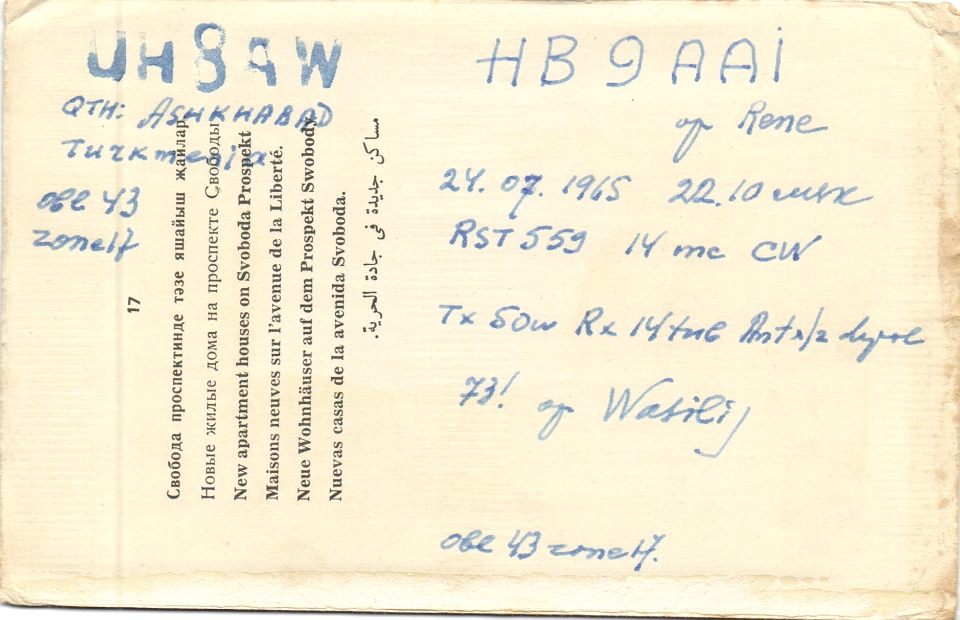 UH8AW
QTH: ASHKHABAD
Turkmenia
obl 43
zone 17
HB9AAI
op Rene
24.07.1965 22.10 MSK
RST 559 14 mc CW
Tx 50w Rx 14 tub Ant λ/2
73! op Wasilij
obl 43 zone 17.
17
Свобода проспектинде тәзе яшайыш җайлар.
Новые жилые дома на проспекте Свободы
New apartment houses on Svoboda Prospekt
Maisons neuves sur l'avenue de la Liberté.
Neue Wohnhäuser auf dem Prospekt Swobody
Nuevas casas de la avenida Svoboda.
مساكن جديدة فى جادة الحرية.